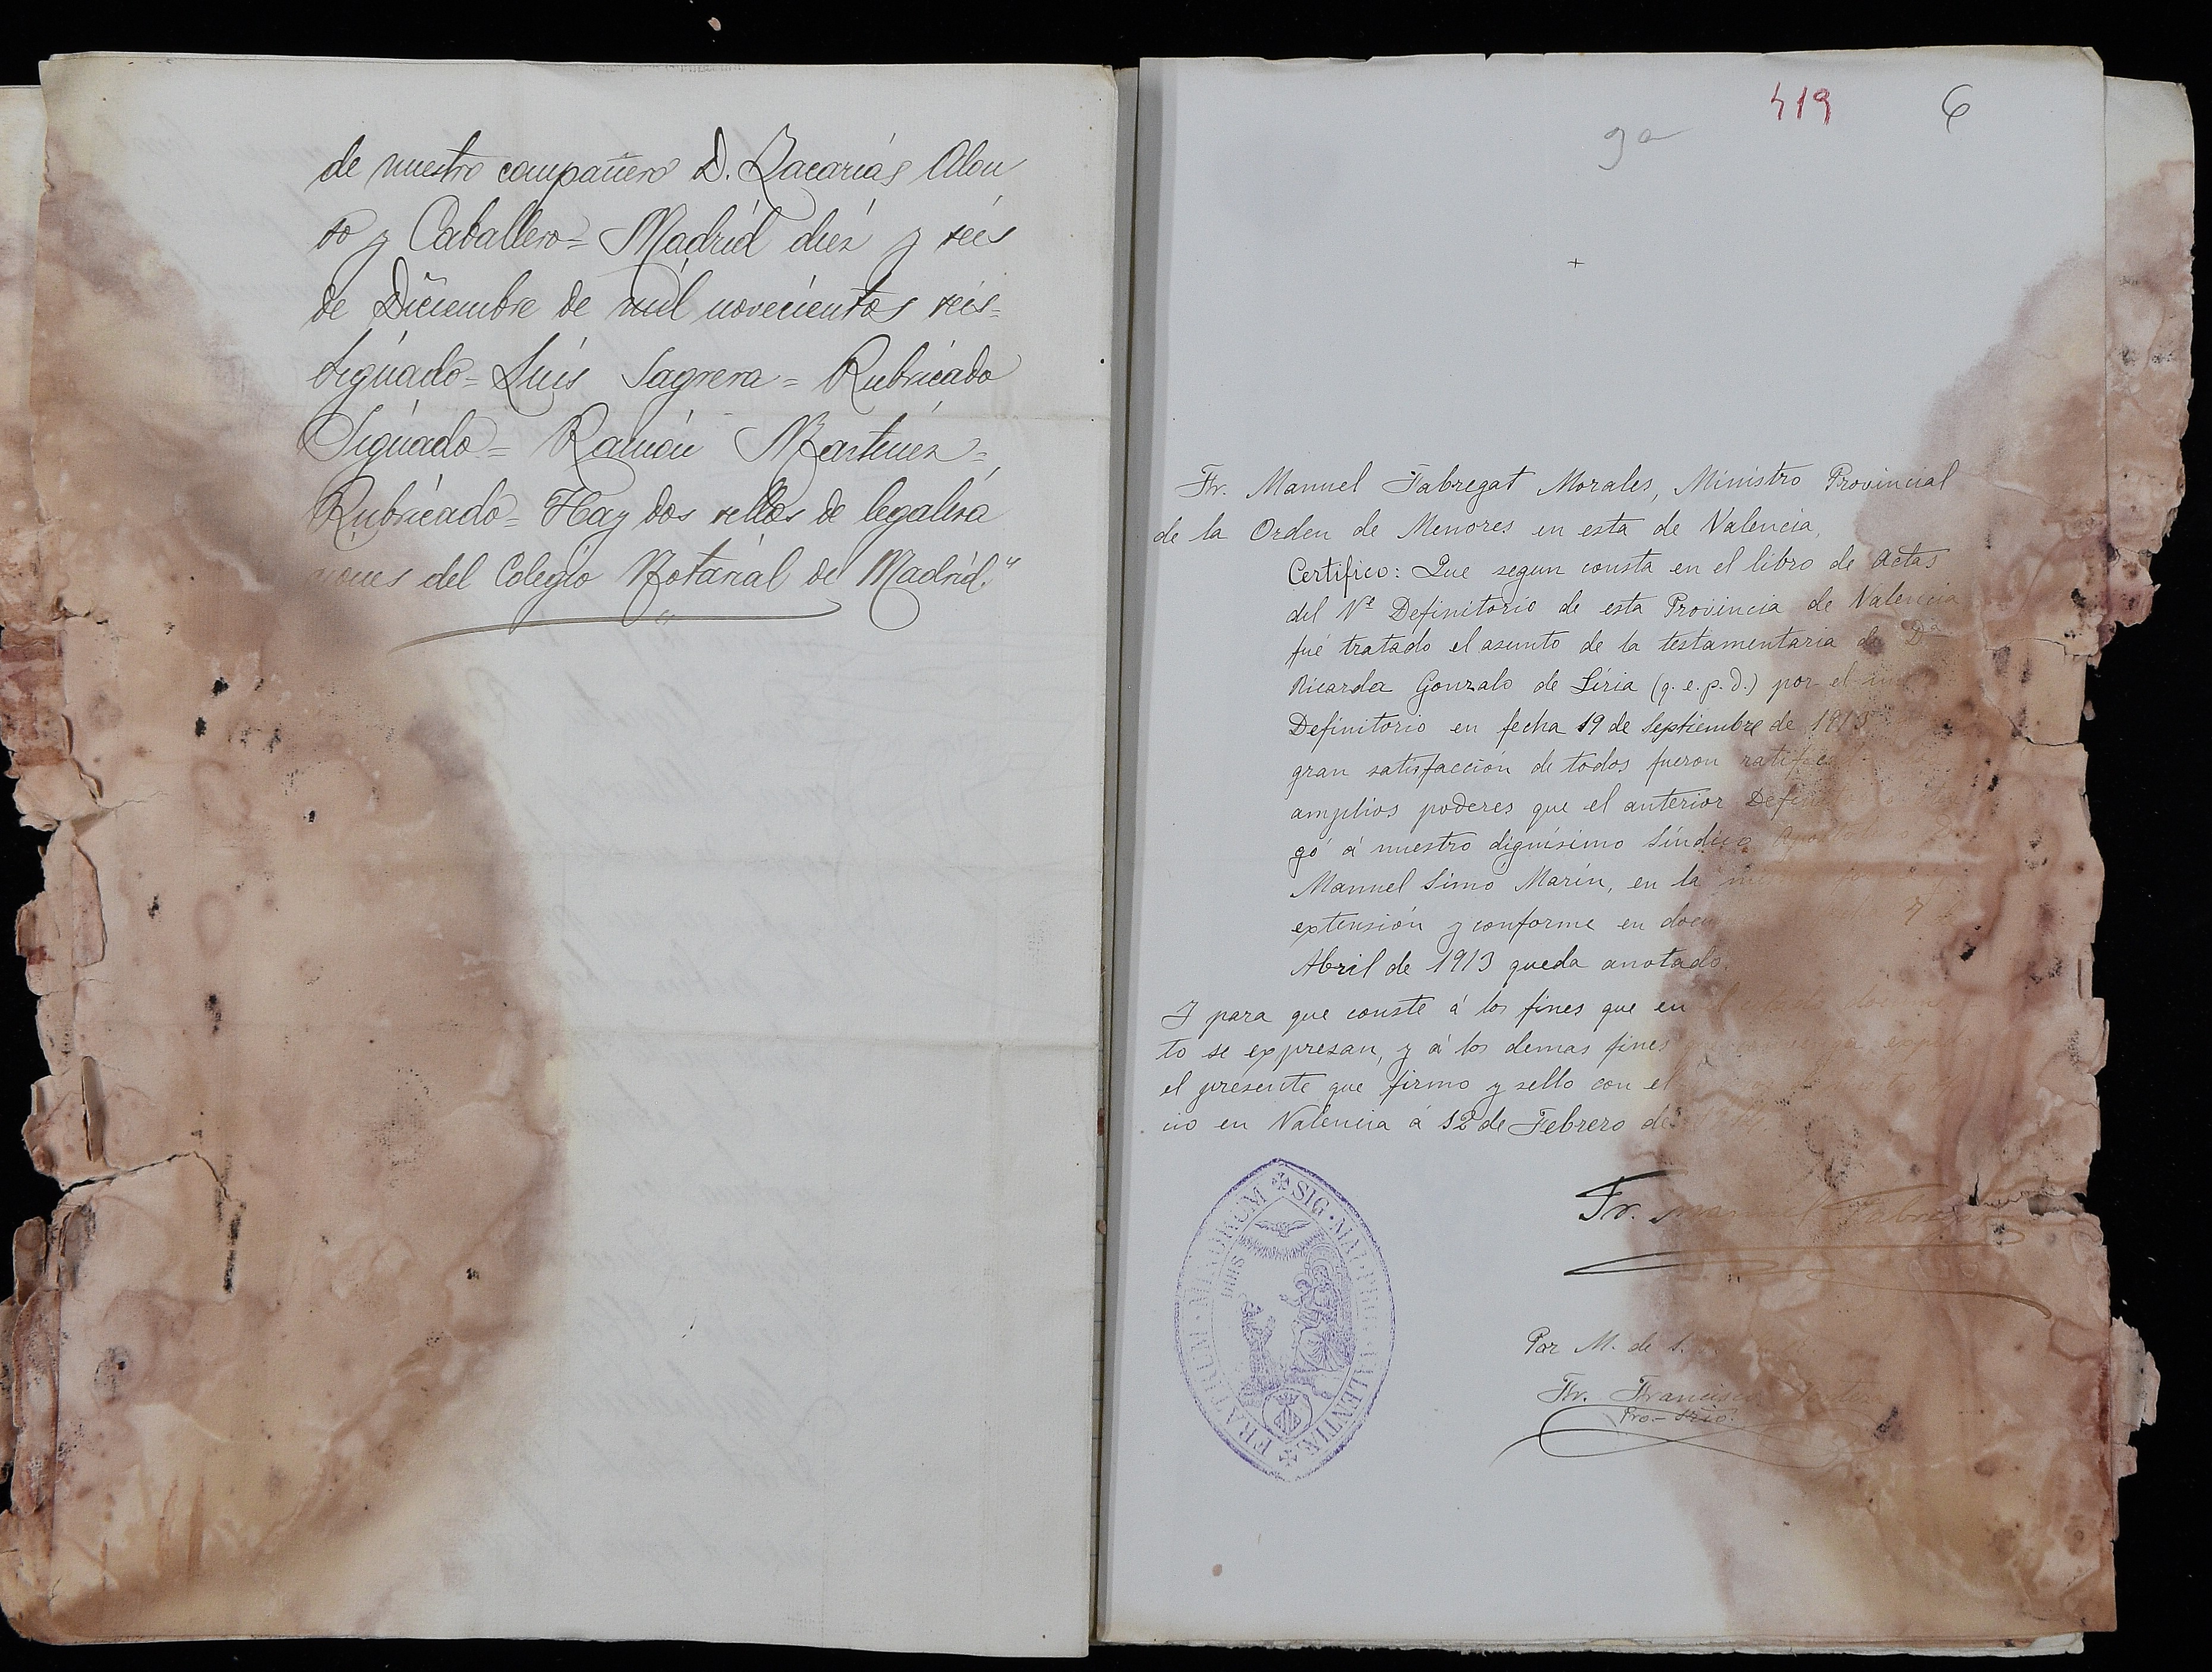 de nuestro compañero D. Zacarías Alon
so y Caballero= Madrid diez y seis
de Diciembre de mil novecientos seis=
Signado= Luis Sagrera= Rubricado
Signado= Ramón Martinez=
Rubricado= Hay dos sellos de legaliza
ciones del Colegio Notarial de Madrid."
419
6
Fr. Manuel Fabregat Morales, Ministro Provincial
de la Orden de Menores en esta de Valencia,
Certifico: Que segun consta en el libro de Actas
del Ve Definitorio de esta Provincia de Valencia
fué tratado el asunto de la testamentaria de Da
Ricarda Gonzalo de Liria (q.e.p.d.) por el
Definitorio en fecha 19 de Septiembre de 1913
gran satisfacción de todos fueron
amplios poderes que el anterior
gó á nuestro dignisimo Síndico Apostolico D.
Manuel Simo Marin, en la
extensión y conforme en
Abril de 1913 queda anotado.
Y para que conste á los fines que en
to se expresan, y á los demas fines
el presente que firmo y sello con el
cio en Valencia á 12 de Febrero de
FRATRUM MINORUM SIG. MAI. PROV. VALENTIÆ
Fr. Manuel Fabregat
Por M. de S.
Fr. Francisco
Pro-Srio.